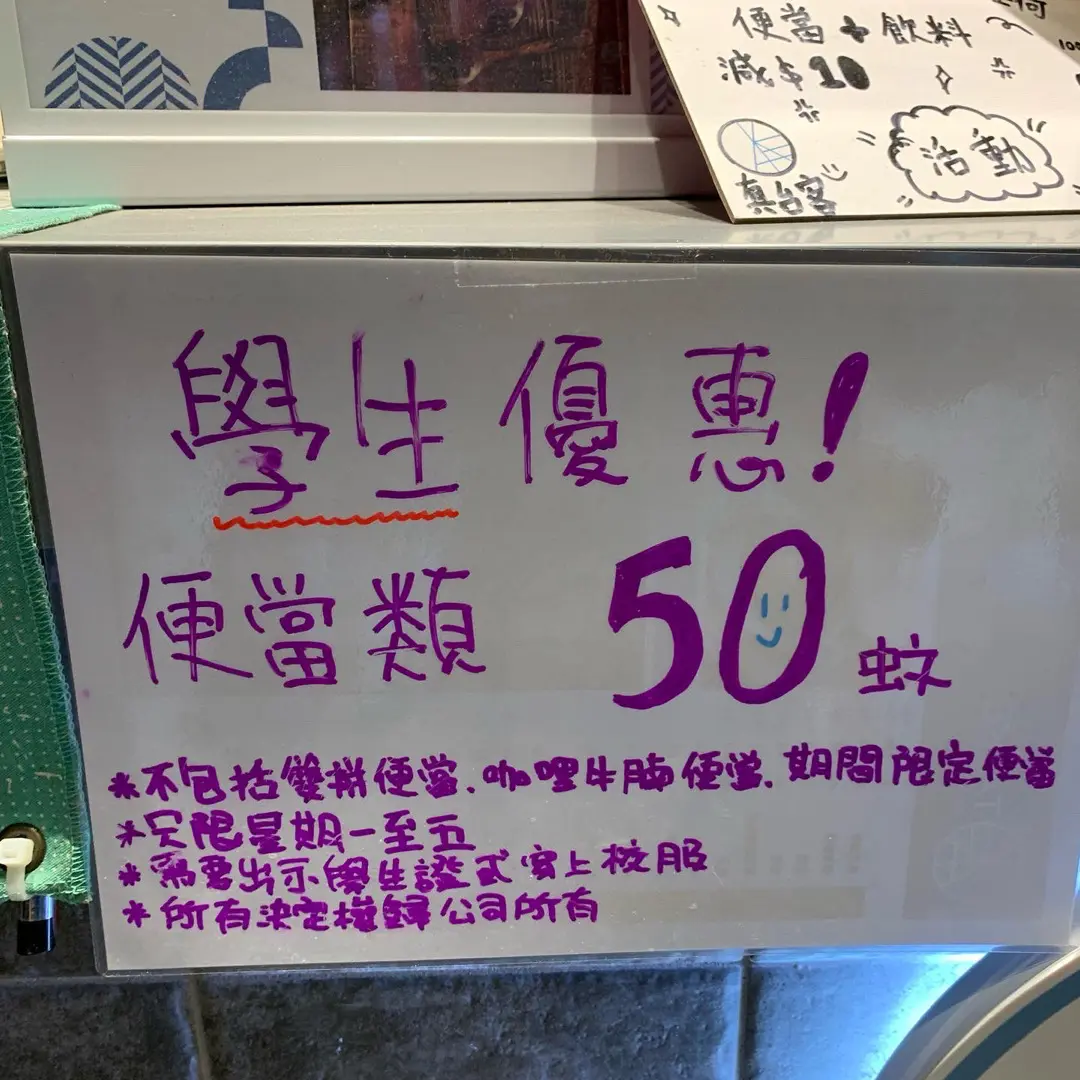 何
便當+飲料
減$10
活動
真台客
學生優惠!
便當類 50 蚊
*不包括雙拼便當、咖哩牛腩便當、期間限定便當
*只限星期一至五
*需要出示學生證或穿上校服
*所有決定權歸公司所有